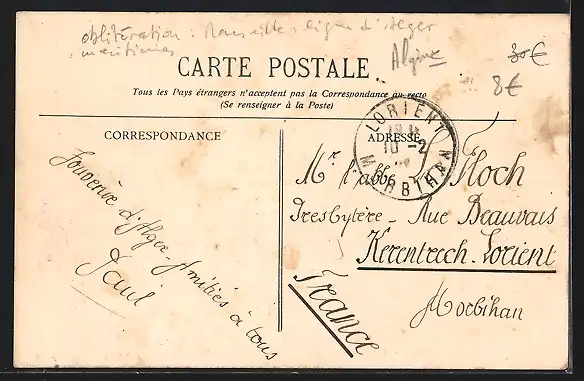 oblitération : Marseille ligne d'Alger
maritimes
Algérie
30€
8€
CARTE POSTALE
Tous les Pays étrangers n'acceptent pas la Correspondance au recto
(Se renseigner à la Poste)
CORRESPONDANCE
ADRESSE
LORIENT
10 -2
MORBIHAN
Souvenir d'Alger. Amitiés à tous
Paul
Mr l'abbé Floch
Presbytère - Rue Beauvais
Kerentrech. Lorient
Morbihan
France